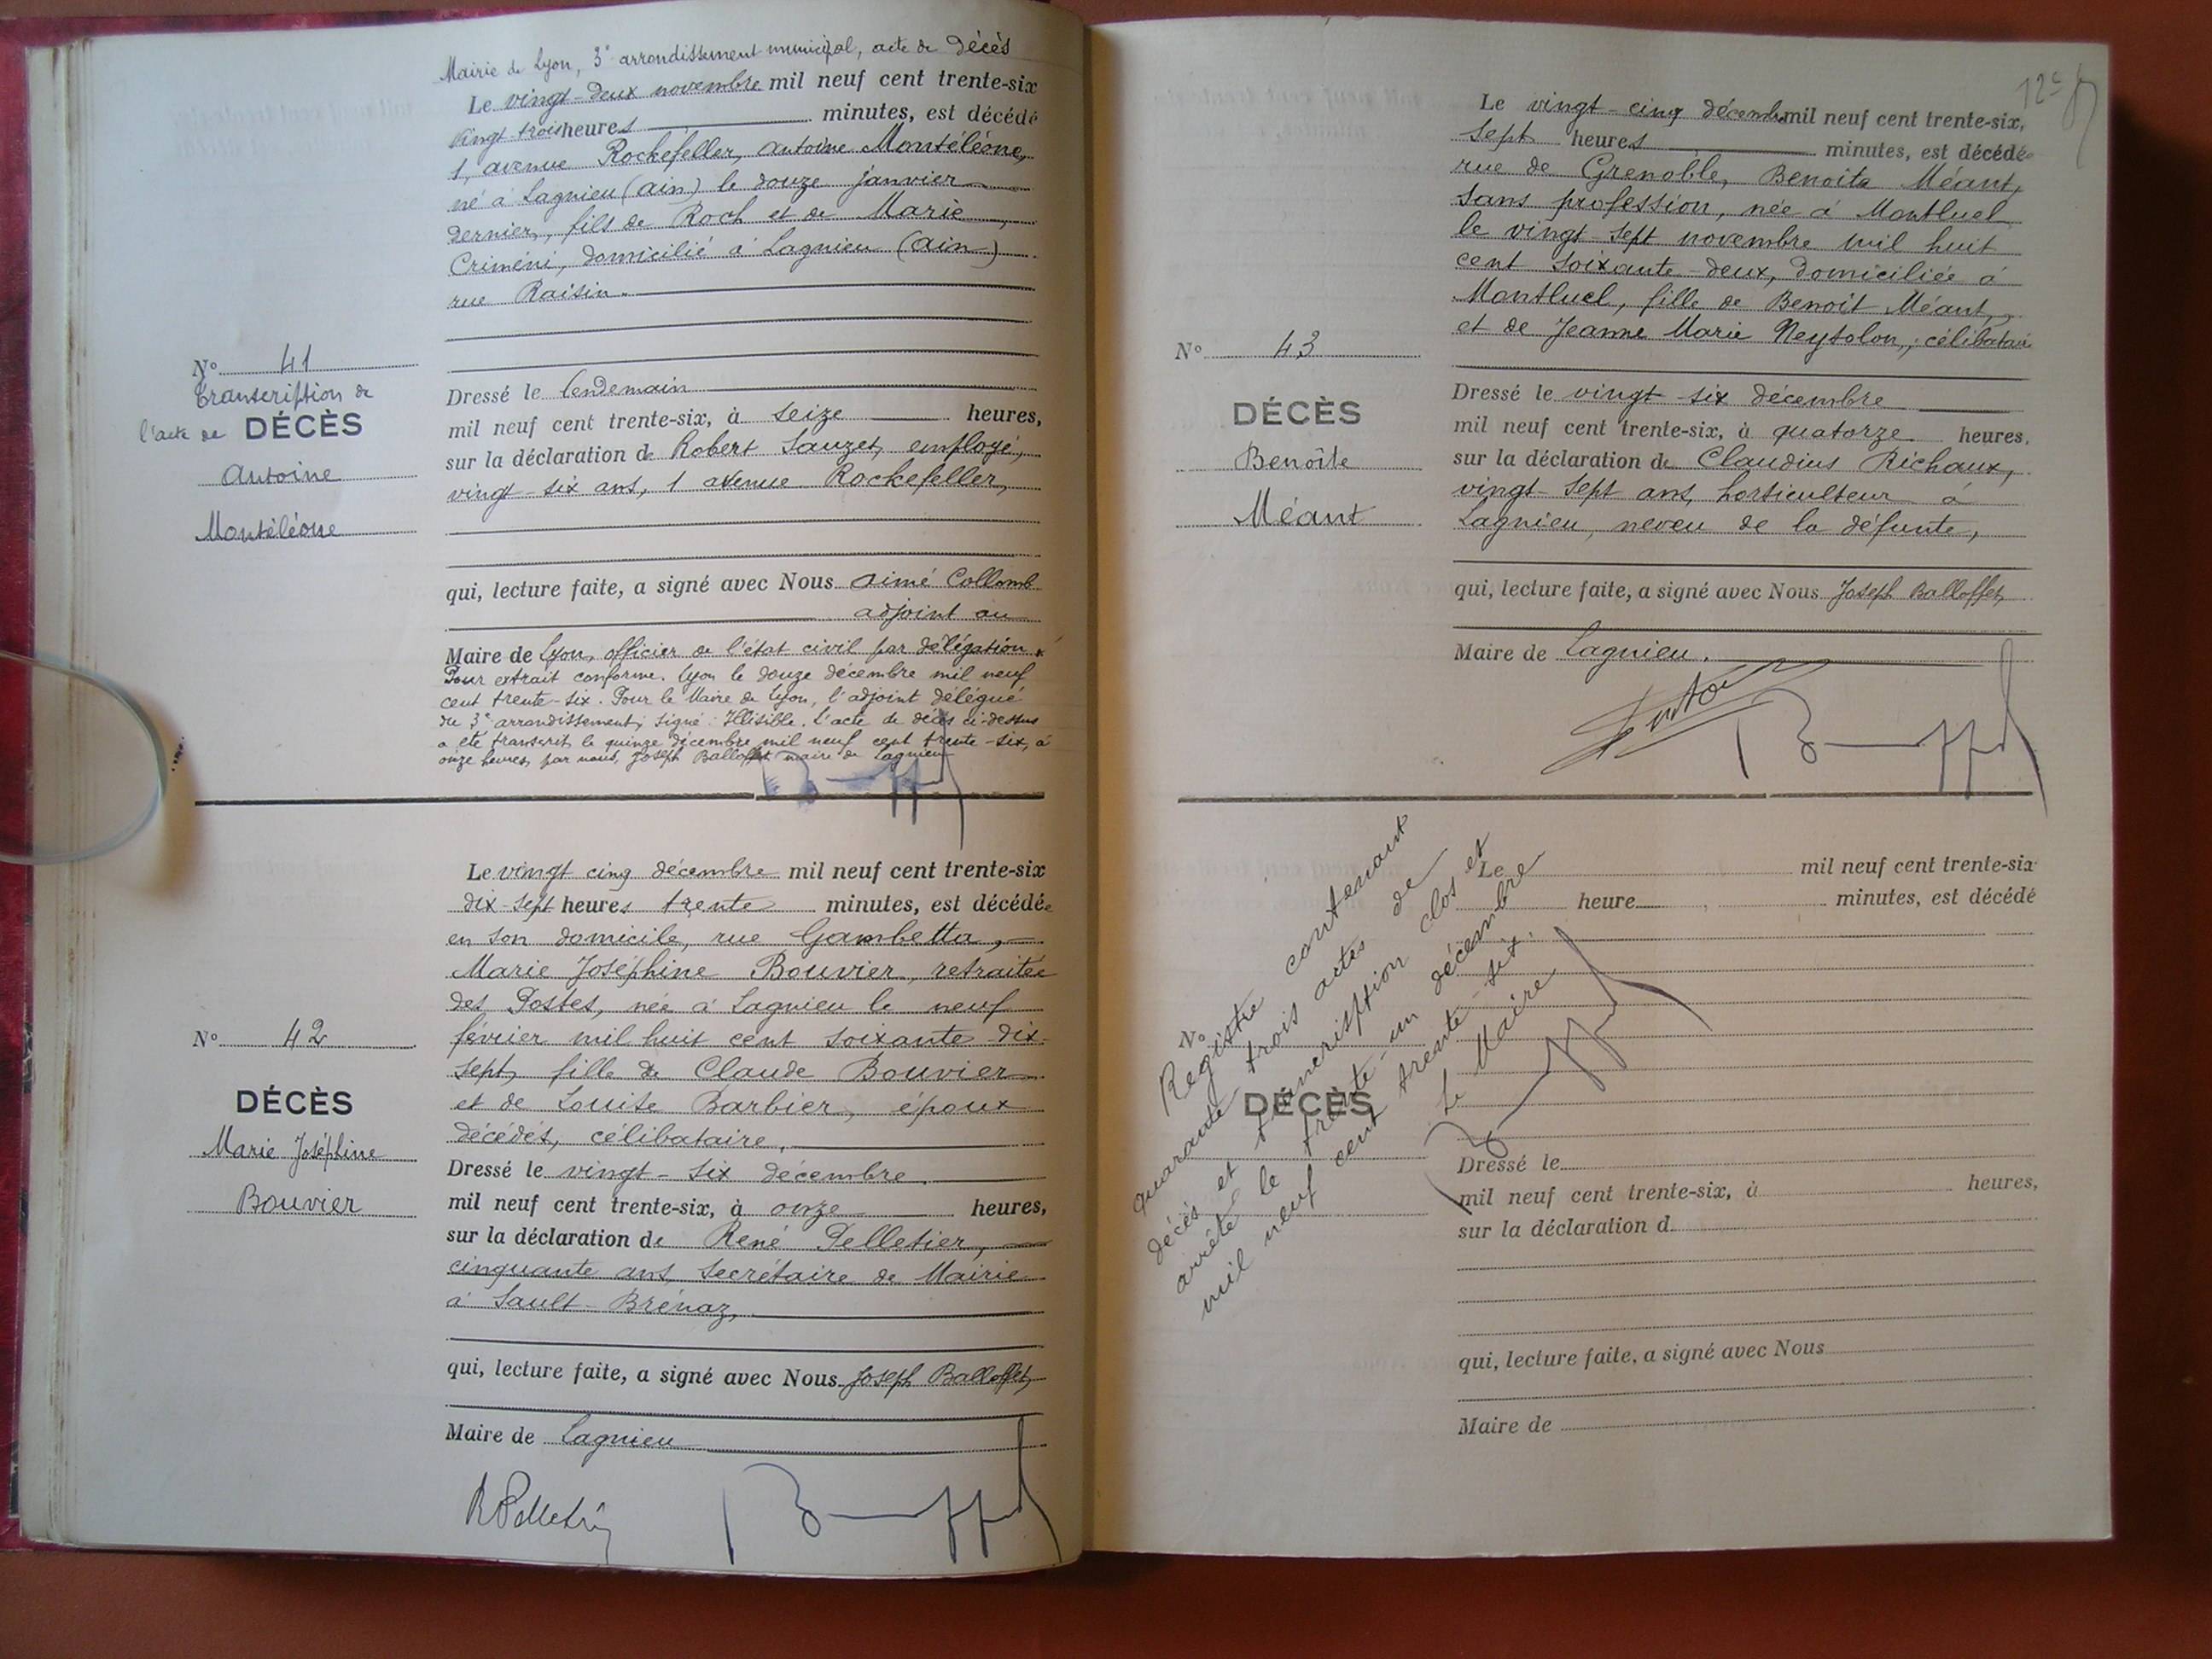 Mairie de Lyon, 3e arrondissement municipal, acte de décès
Le vingt-deux novembre mil neuf cent trente-six
vingt-trois heures minutes, est décédé
1, avenue Rockefeller, Antoine Montéléone,
né à Lagnieu (Ain) le douze janvier
dernier, fils de Roch et de Marie
Criméni, domicilié à Lagnieu (Ain)
rue Raisin.
N° 41
transcription de
l'acte de DÉCÈS
Antoine
Montéléone
Dressé le lendemain
mil neuf cent trente-six, à seize heures,
sur la déclaration de Robert Sauzet, employé,
vingt-six ans, 1 avenue Rockefeller,
qui, lecture faite, a signé avec Nous Aimé Collomb
adjoint au
Maire de Lyon, officier de l'état civil par délégation.
Pour extrait conforme. Lyon le douze décembre mil neuf
cent trente-six. Pour le Maire de Lyon, l'adjoint délégué
du 3e arrondissement, signé : Illisible. L'acte de décès ci-dessus
a été transcrit le quinze décembre mil neuf cent trente-six, à
onze heures, par nous, Joseph Balloffet maire de Lagnieu
Le vingt cinq décembre mil neuf cent trente-six
dix-sept heures trente minutes, est décédée
en son domicile, rue Gambetta,
Marie Joséphine Bouvier, retraitée
des Postes, née à Lagnieu le neuf
février mil huit cent soixante-dix-
sept, fille de Claude Bouvier
et de Louise Barbier, époux
décédés, célibataire.
N° 42
DÉCÈS
Marie Joséphine
Bouvier
Dressé le vingt-six décembre
mil neuf cent trente-six, à onze heures,
sur la déclaration de René Pelletier,
cinquante ans, secrétaire de Mairie
à Sault-Brénaz,
qui, lecture faite, a signé avec Nous Joseph Balloffet,
Maire de Lagnieu
RPelletier
12e
Le vingt-cinq décembre mil neuf cent trente-six,
sept heures minutes, est décédée
rue de Grenoble, Benoîte Méant,
sans profession, née à Montluel
le vingt-sept novembre mil huit
cent soixante-deux, domiciliée à
Montluel, fille de Benoît Méant,
et de Jeanne Marie Neytolon, célibataire
N° 43
DÉCÈS
Benoîte
Méant
Dressé le vingt-six décembre
mil neuf cent trente-six, à quatorze heures.
sur la déclaration de Claudius Richaux,
vingt-sept ans, horticulteur à
Lagnieu, neveu de la défunte,
qui, lecture faite, a signé avec Nous Joseph Balloffet,
Maire de Lagnieu.
Le mil neuf cent trente-six
heure minutes, est décédé
N°
DÉCÈS
Registre contenant
quarante trois actes de
décès et transcription clos et
arrêté le trente-un décembre
mil neuf cent trente-six.
Le Maire
Dressé le
mil neuf cent trente-six, à heures,
sur la déclaration d
qui, lecture faite, a signé avec Nous
Maire de